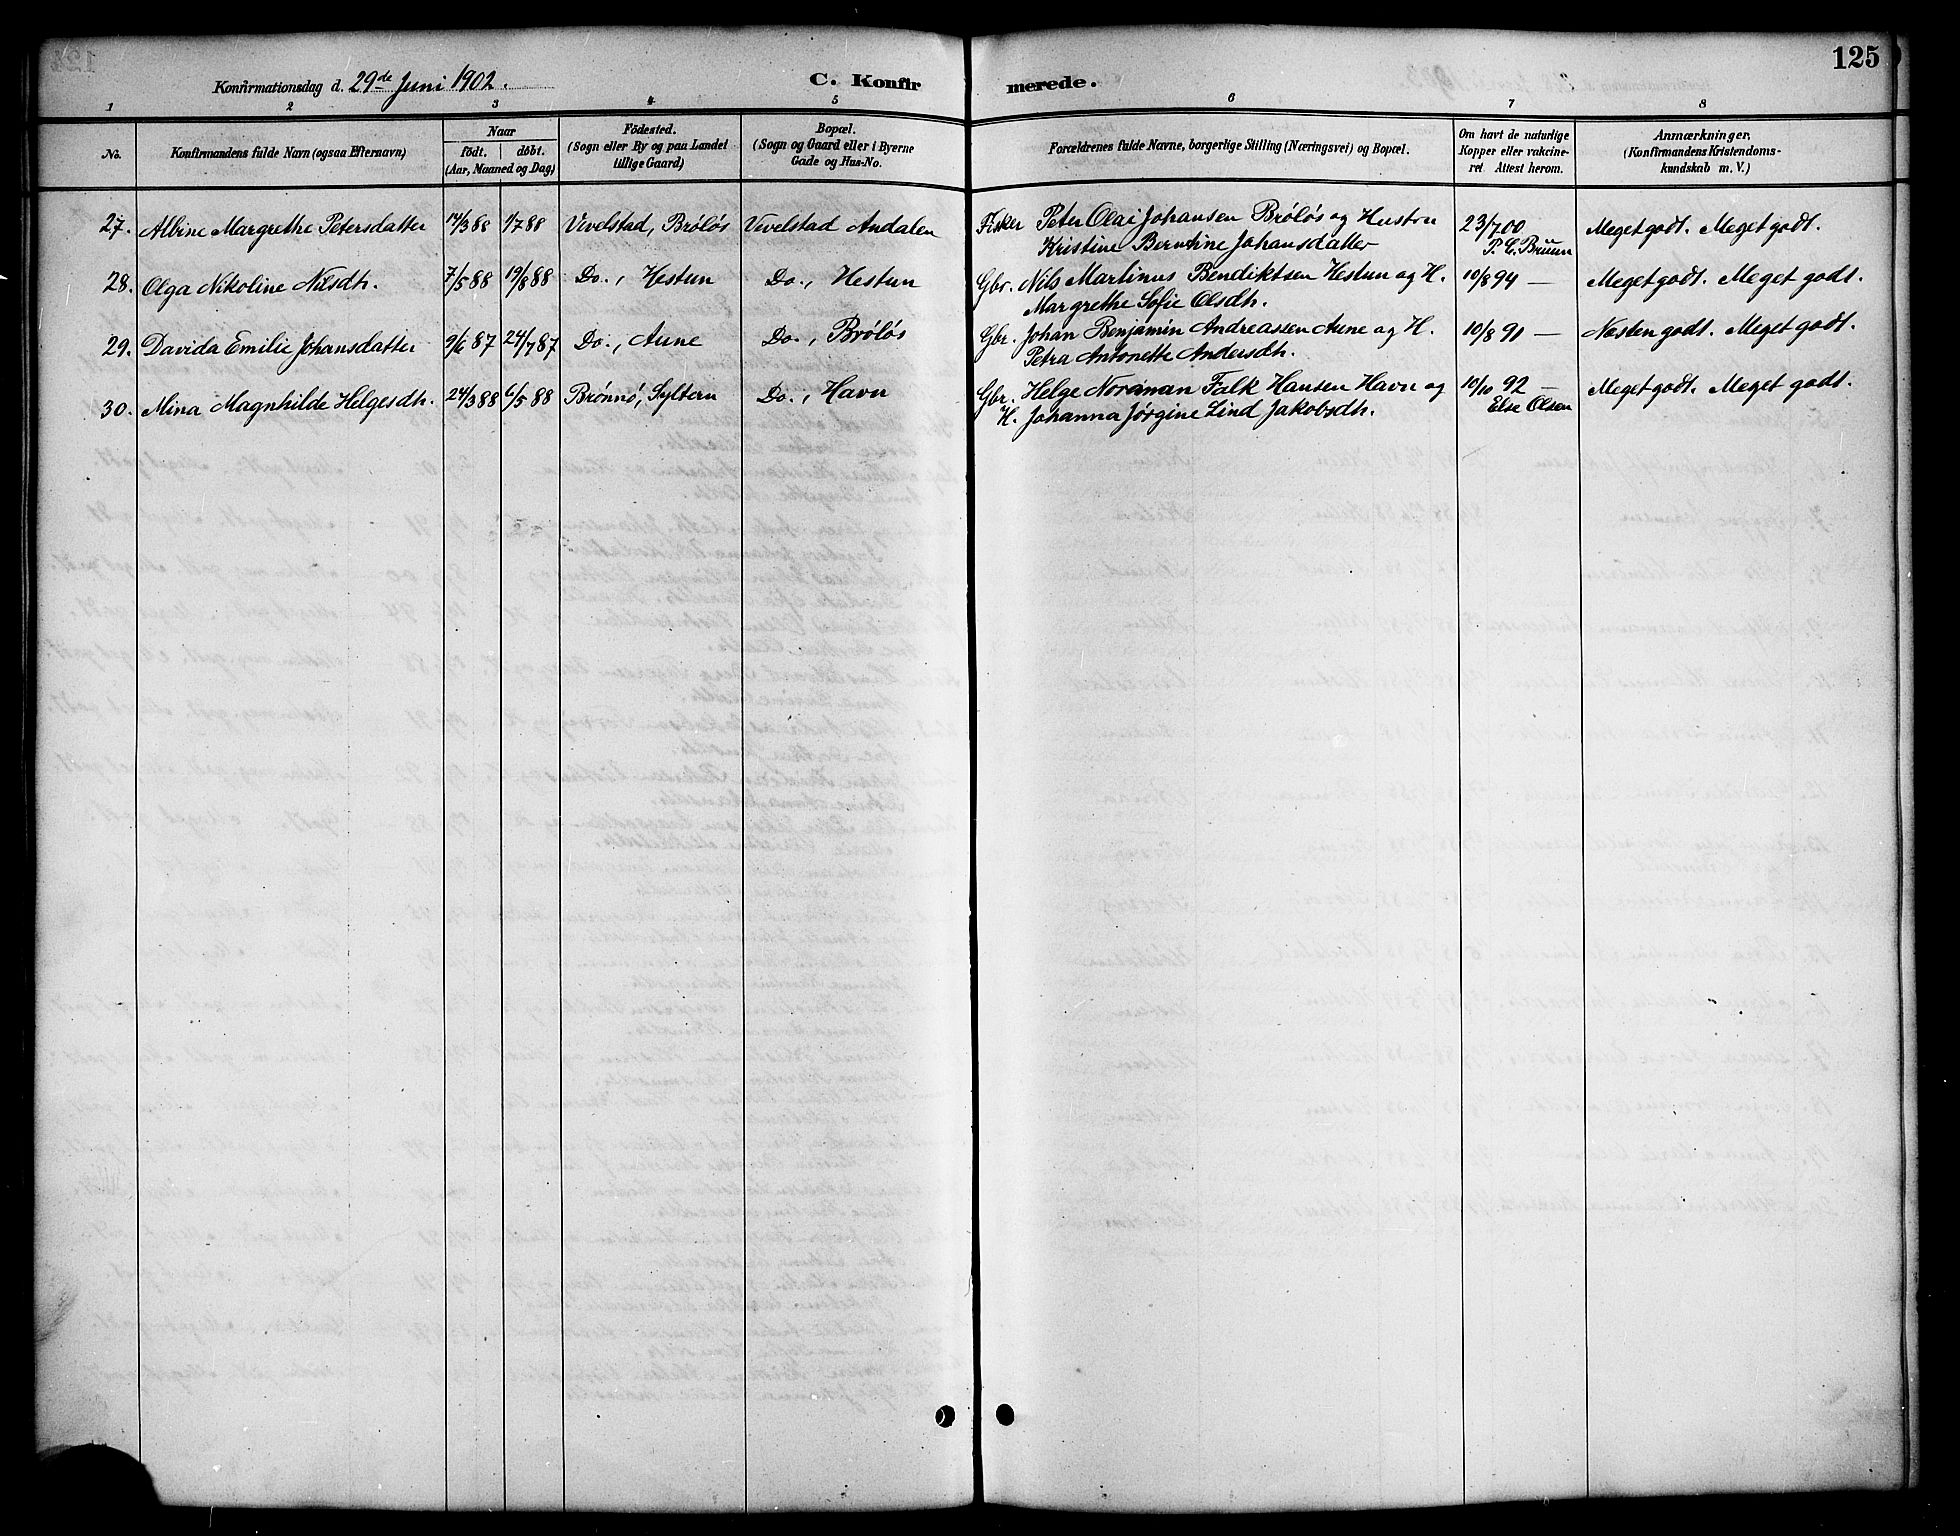 125
Konfirmationsdag d. 29de Juni 1902. C. Konfirmerede.
1 2 3 4 5 6 7 8
No. Konfirmandens fulde Navn (ogsaa Efternavn) Naar født. døbt. (Aar, Maaned og Dag) Födested. (Sogn eller By og paa Landet tillige Gaard) Bopæl. (Sogn og Gaard eller i Byerne Gade og Hus-No. Forældrenes fulde Navne, borgerlige Stilling (Næringsvei) og Bopæl. Om havt de naturlige Kopper eller vakcineret. Attest herom. Anmærkninger. (Konfirmandens Kristendomskundskab m. V.)
27. Albine Margrethe Petersdatter 14/3 88 1/7 88 Vevelstad, Bröløs Vevelstad Andalen Fisker Peter Olai Johansen Bröløs og Hustru 23/7 00 Meget godt. Meget godt.
Kristine Berntine Johansdatter P. C. Bruun
28. Olga Nikoline Nilsdh. 7/5 88 19/8 88 Do., Hestun Do., Hestun Gbr. Nils Martinus Bendiktsen Hestun og H. 10/8 94 — Meget godt. Meget godt.
Margrethe Sofie Olsdh.
29. Davida Emilie Johansdatter 9/6 87 24/7 87 Do., Aune Do., Bröløs Gbr. Johan Benjamin Andreassen Aune og H. 10/8 91 — Næsten godt. Meget godt.
Petra Antonette Andersdh.
30. Mina Magnhilde Helgesdh. 24/3 88 6/5 88 Brønnø, Syltern Do., Havn Gbr. Helge Norman Falk Hansen Havn og 10/10 92 — Meget godt. Meget godt.
H. Johanna Jørgine Lind Jakobsdh. Else Olsen